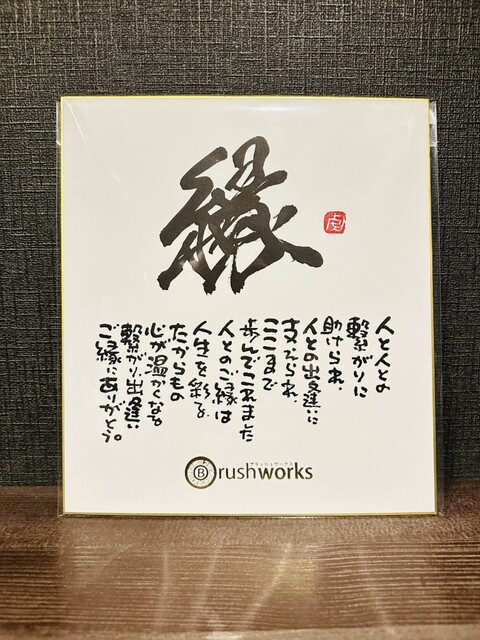 縁
人と人との
繋がりに
助けられ、
人との出逢いに
支えられ、
ここまで
歩んでこれました
人とのご縁は
人生を彩る
たからもの
心が温かくなる
繋がり、出逢い
ご縁にありがとう。
ブラッシュワークス
Brushworks